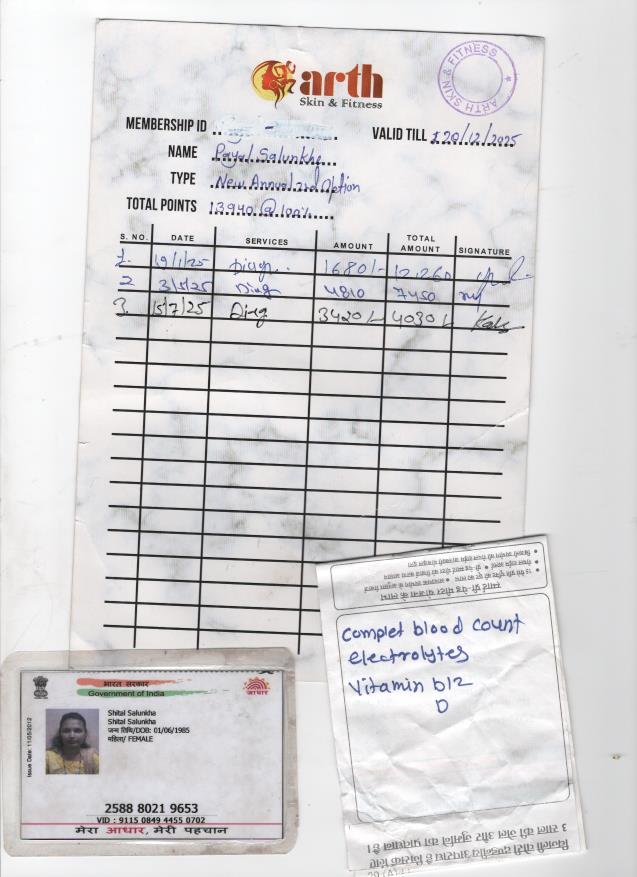 arth
Skin & Fitness
ARTH SKIN & FITNESS
MEMBERSHIP ID
VALID TILL 20/12/2025
NAME Payal Salunkhe
TYPE New Annual 2nd Option
TOTAL POINTS 13940 @ 100%
S. NO. DATE SERVICES AMOUNT TOTAL AMOUNT SIGNATURE
1. 19/1/25 1680/- 12,260
2 3/5/25 4810 7450
3. 15/7/25 3420/- 4030/-
भारत सरकार
Government of India
आधार
Issue Date: 11/05/2012
Shital Salunkha
Shital Salunkha
जन्म तिथि/DOB: 01/06/1985
महिला/ FEMALE
2588 8021 9653
VID : 9115 0849 4455 0702
मेरा आधार, मेरी पहचान
स्मार्ट प्री-पेड मीटर योजना के लाभ
complet blood count
electrolytes
Vitamin b12
D
3 साल की जेल और जुर्माने का प्रावधान है।